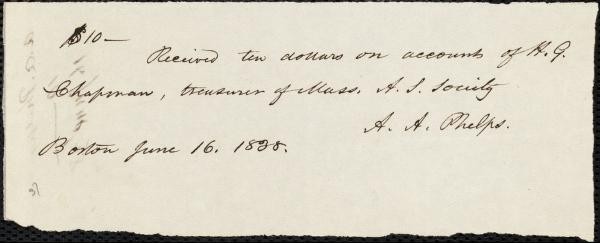 $10—
Received ten dollars on account of H. G.
Chapman, treasurer of Mass. A. S. Society
A. A. Phelps.
Boston June 16. 1838.